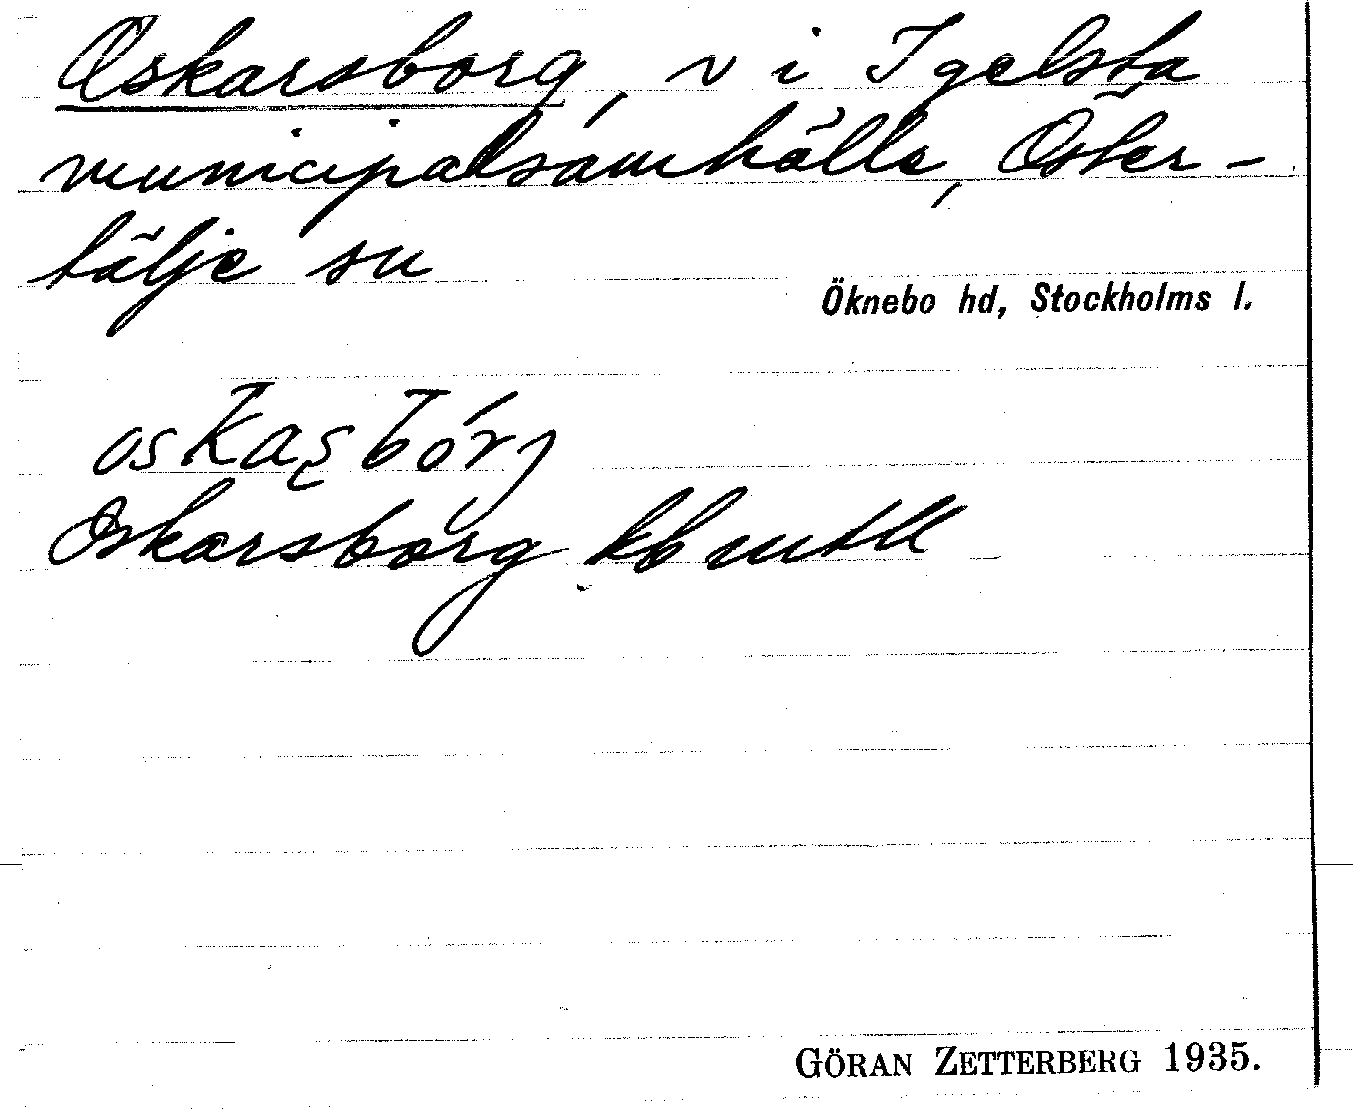 Oskarsborg, v i Igelsta
municipalsamhälle, Öster-
tälje sn
Öknebo hd, Stockholms l.
Oskarsborg kb mtll
GÖRAN ZETTERBERG 1935.